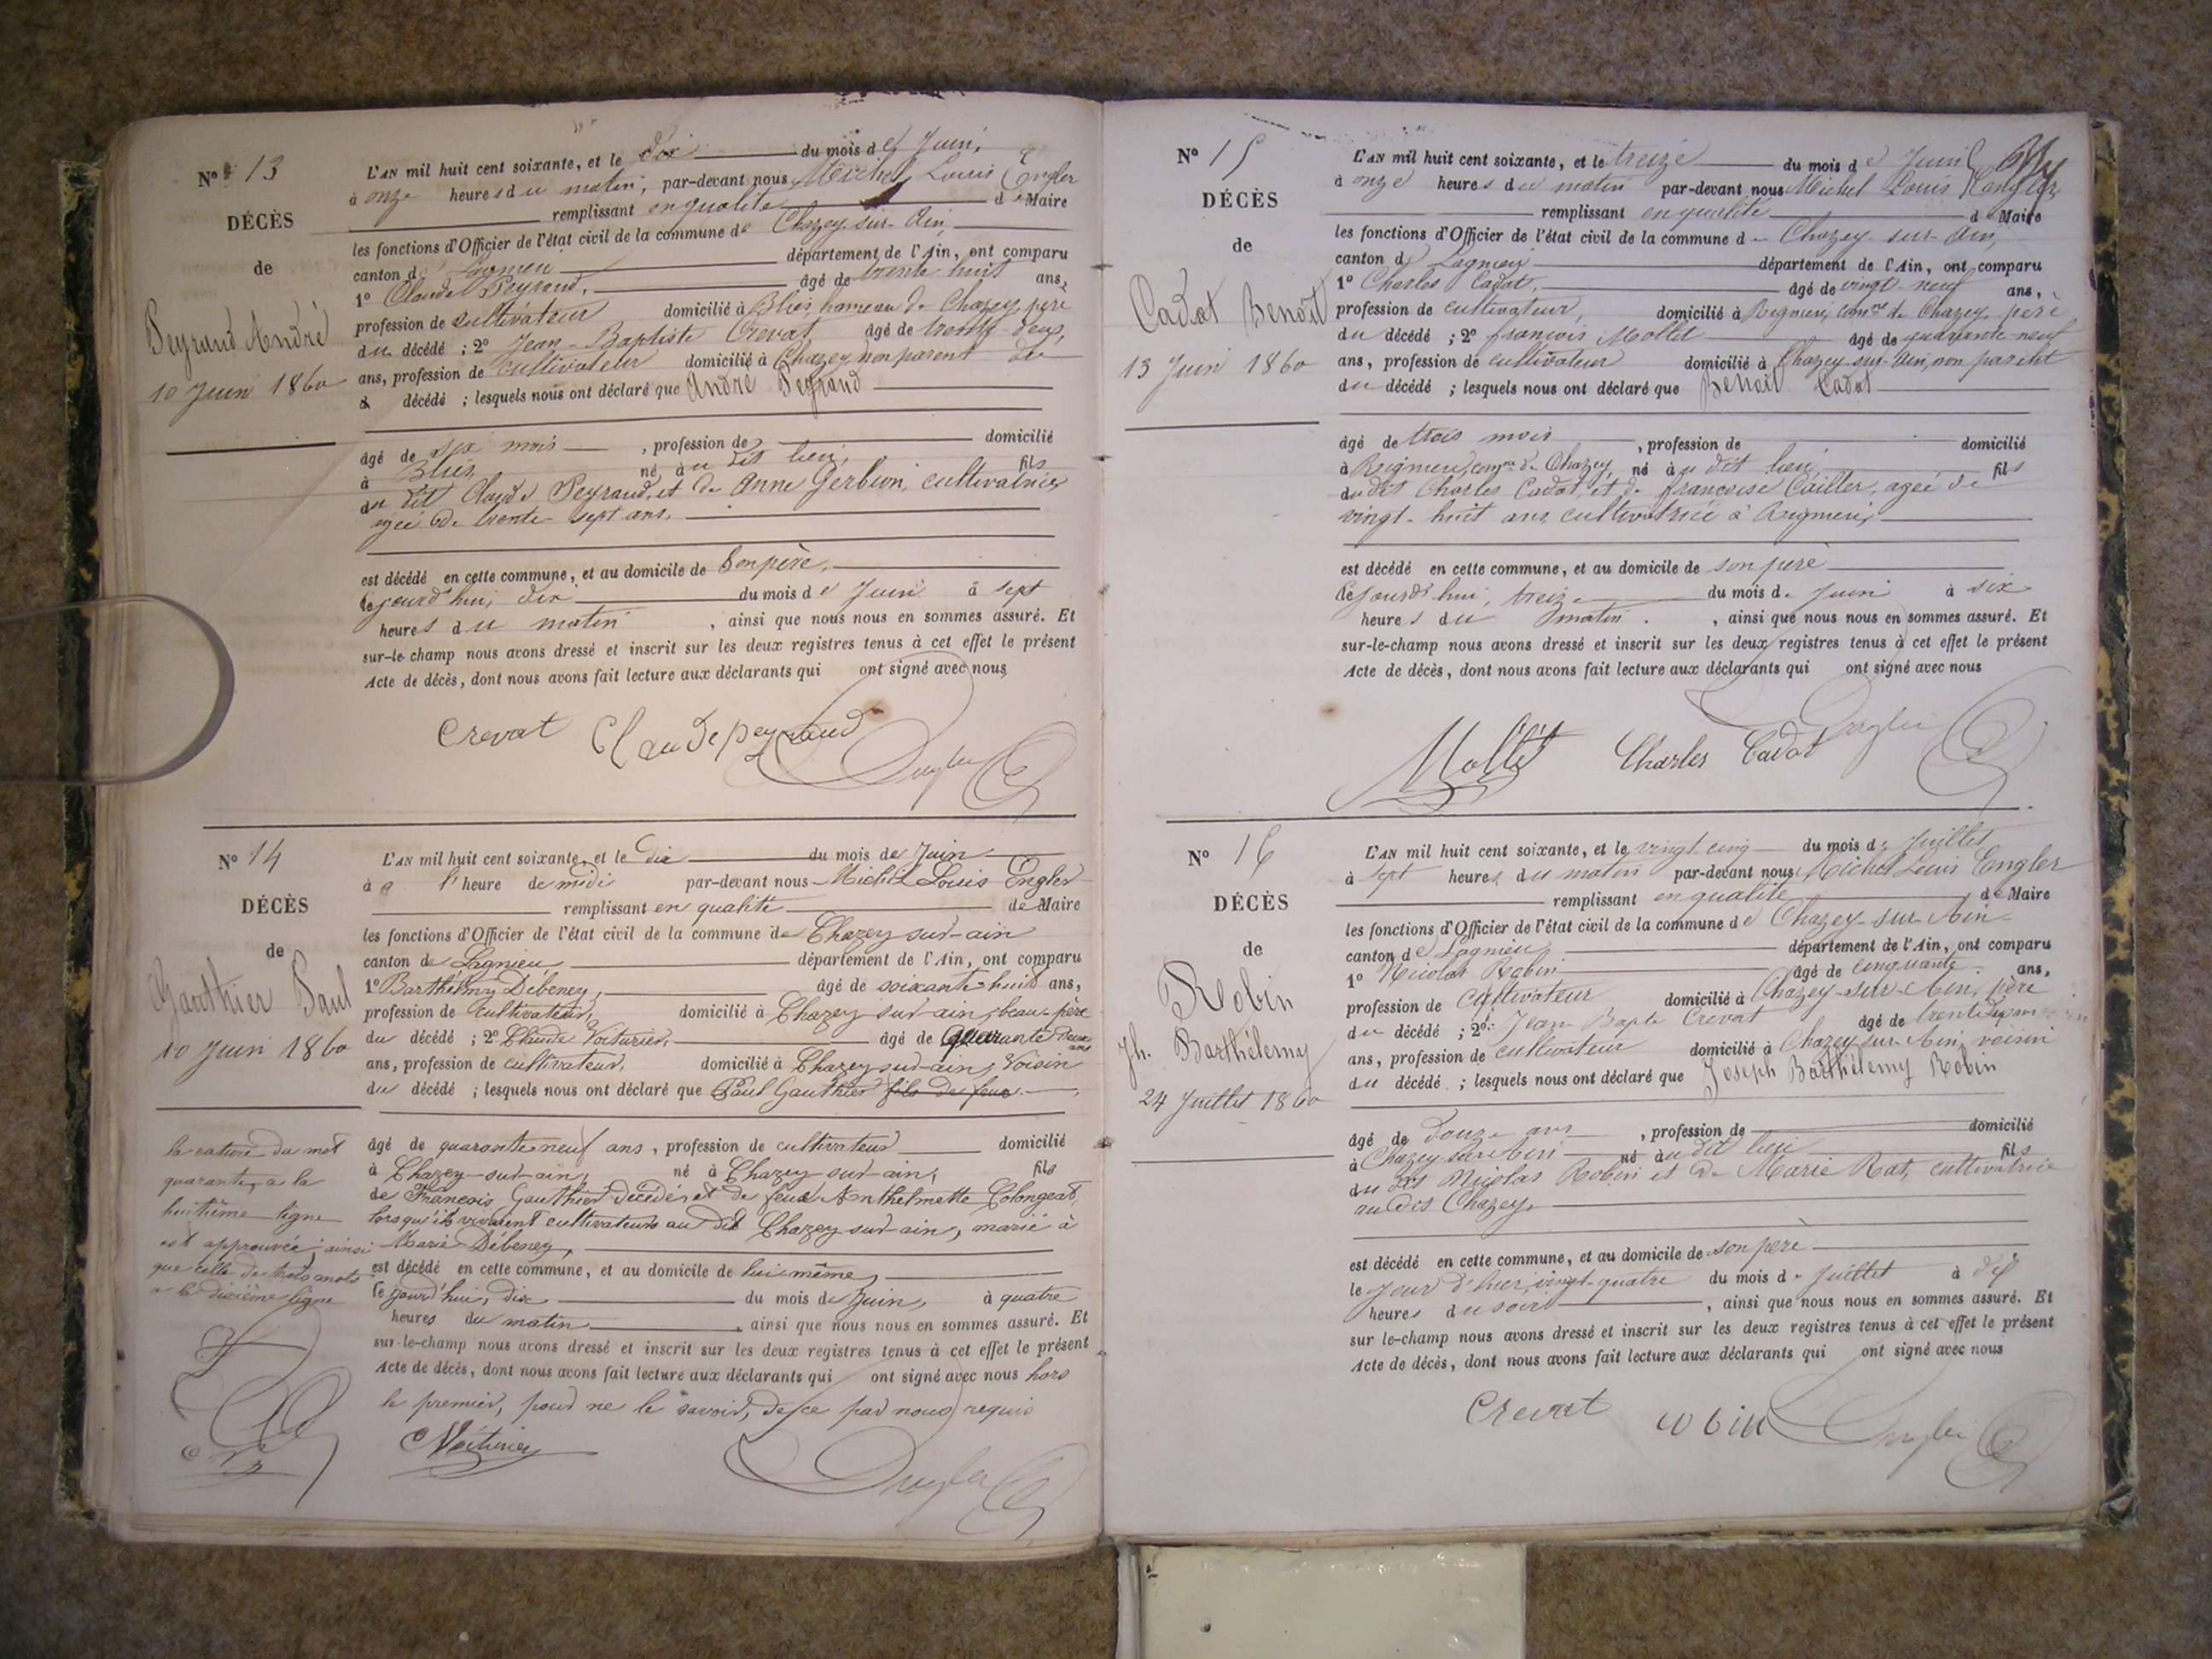 N° 13
DÉCÈS
de
Peyraud André
10 Juin 1860
L'AN mil huit cent soixante, et le dix du mois de Juin,
à onze heures du matin, par-devant nous Michel Louis Engler
remplissant en qualité de Maire
les fonctions d'Officier de l'état civil de la commune de Chazey-sur-Ain,
canton de Lagnieu département de l'Ain, ont comparu
1° Claude Peyraud, âgé de trente huit ans,
profession de cultivateur domicilié à Bliès, hameau de Chazey, père
du décédé ; 2° Jean-Baptiste Crevat, âgé de trente-deux,
ans, profession de cultivateur domicilié à Chazey non parent du
décédé ; lesquels nous ont déclaré que André Peyraud
âgé de six mois , profession de domicilié
à Bliès né au dit lieu, fils
du dit Claude Peyraud, et de Anne Gerbion, cultivatrice,
agée de trente-sept ans.
est décédé en cette commune, et au domicile de son père,
le jourd'hui, dix du mois de Juin à sept
heures du matin , ainsi que nous nous en sommes assuré. Et
sur-le-champ nous avons dressé et inscrit sur les deux registres tenus à cet effet le présent
Acte de décès, dont nous avons fait lecture aux déclarants qui ont signé avec nous
Crevat Claude peyraud Engler
N° 14
DÉCÈS
de
Gauthier Paul
10 Juin 1860
L'AN mil huit cent soixante, et le dix du mois de Juin
à a l'heure de midi par-devant nous Michel Louis Engler
remplissant en qualité de Maire
les fonctions d'Officier de l'état civil de la commune de Chazey sur-ain
canton de Lagnieu département de l'Ain, ont comparu
1° Barthélmy Débeney, âgé de soixante-huit ans,
profession de cultivateur, domicilié à Chazey sur-ain, beau-père
du décédé ; 2° Claude Voiturier, âgé de quarante deux ans
ans, profession de cultivateur, domicilié à Chazey sur-ain, Voisin
du décédé ; lesquels nous ont déclaré que Paul Gauthier fils de feu
âgé de quarante neuf ans , profession de cultivateur domicilié
à Chazey-sur-ain, né à Chazey sur-ain, fils
de François Gauthier décédé, et de feue Anthelmette Colongeat,
lorsqu'ils vivaient cultivateurs au dit Chazey sur-ain, marié à
Marie Débeney,
est décédé en cette commune, et au domicile de lui même,
le jourd'hui, dix du mois de Juin, à quatre
heures du matin , ainsi que nous nous en sommes assuré. Et
sur-le-champ nous avons dressé et inscrit sur les deux registres tenus à cet effet le présent
Acte de décès, dont nous avons fait lecture aux déclarants qui ont signé avec nous hors
le premier, pour ne le savoir, de ce par nous requis
la rature du mot
quarante, a la
huitième ligne
est approuvée, ainsi
que celle de trois mots
a la dixième ligne
CV Voiturier Engler
N° 15
DÉCÈS
de
Cadot Benoit
13 Juin 1860
L'AN mil huit cent soixante, et le treize du mois de Juin
à onze heures du matin par-devant nous Michel Louis Engler,
remplissant en qualité de Maire
les fonctions d'Officier de l'état civil de la commune de Chazey-sur-Ain,
canton de Lagnieu département de l'Ain, ont comparu
1° Charles Cadot, âgé de vingt neuf ans,
profession de cultivateur, domicilié à Rignieu, comne de Chazey, père
du décédé ; 2° françois Mollet âgé de quarante-neuf
ans, profession de cultivateur domicilié à Chazey-sur-Ain, non parent
du décédé ; lesquels nous ont déclaré que Benoit Cadot
âgé de trois mois , profession de domicilié
à Rignieu, comne de Chazey, né au dit lieu, fils
du dit Charles Cadot, et de françoise Cailler, agée de
vingt-huit ans cultivatrice à Rignieu,
est décédé en cette commune, et au domicile de son père
le jourd'hui, treize du mois de Juin à six
heures du matin . , ainsi que nous nous en sommes assuré. Et
sur-le-champ nous avons dressé et inscrit sur les deux registres tenus à cet effet le présent
Acte de décès, dont nous avons fait lecture aux déclarants qui ont signé avec nous
Mollet Charles Cadot Engler
N° 16
DÉCÈS
de
Robin
Jh. Barthélemy
24 Juillet 1860
L'AN mil huit cent soixante, et le vingt cinq du mois de Juillet
à sept heures du matin par-devant nous Michel Louis Engler
remplissant en qualité de Maire
les fonctions d'Officier de l'état civil de la commune de Chazey-sur-Ain
canton de Lagnieu département de l'Ain, ont comparu
1° Nicolas Robin âgé de cinquante ans,
profession de cultivateur domicilié à Chazey-sur-Ain, père
du décédé ; 2° Jean Bapte Crevat âgé de trente deux
ans, profession de cultivateur domicilié à Chazey-sur-Ain, voisin
du décédé ; lesquels nous ont déclaré que Joseph Barthélemy Robin
âgé de douze ans , profession de domicilié
à Chazey-sur-Ain né au dit lieu fils
du dit Nicolas Robin et de Marie Rat, cultivatrice
au dit Chazey.
est décédé en cette commune, et au domicile de son père
le jour d'hier, vingt-quatre du mois de Juillet à dix
heures du soir , ainsi que nous nous en sommes assuré. Et
sur le-champ nous avons dressé et inscrit sur les deux registres tenus à cet effet le présent
Acte de décès, dont nous avons fait lecture aux déclarants qui ont signé avec nous
Crevat robin Engler